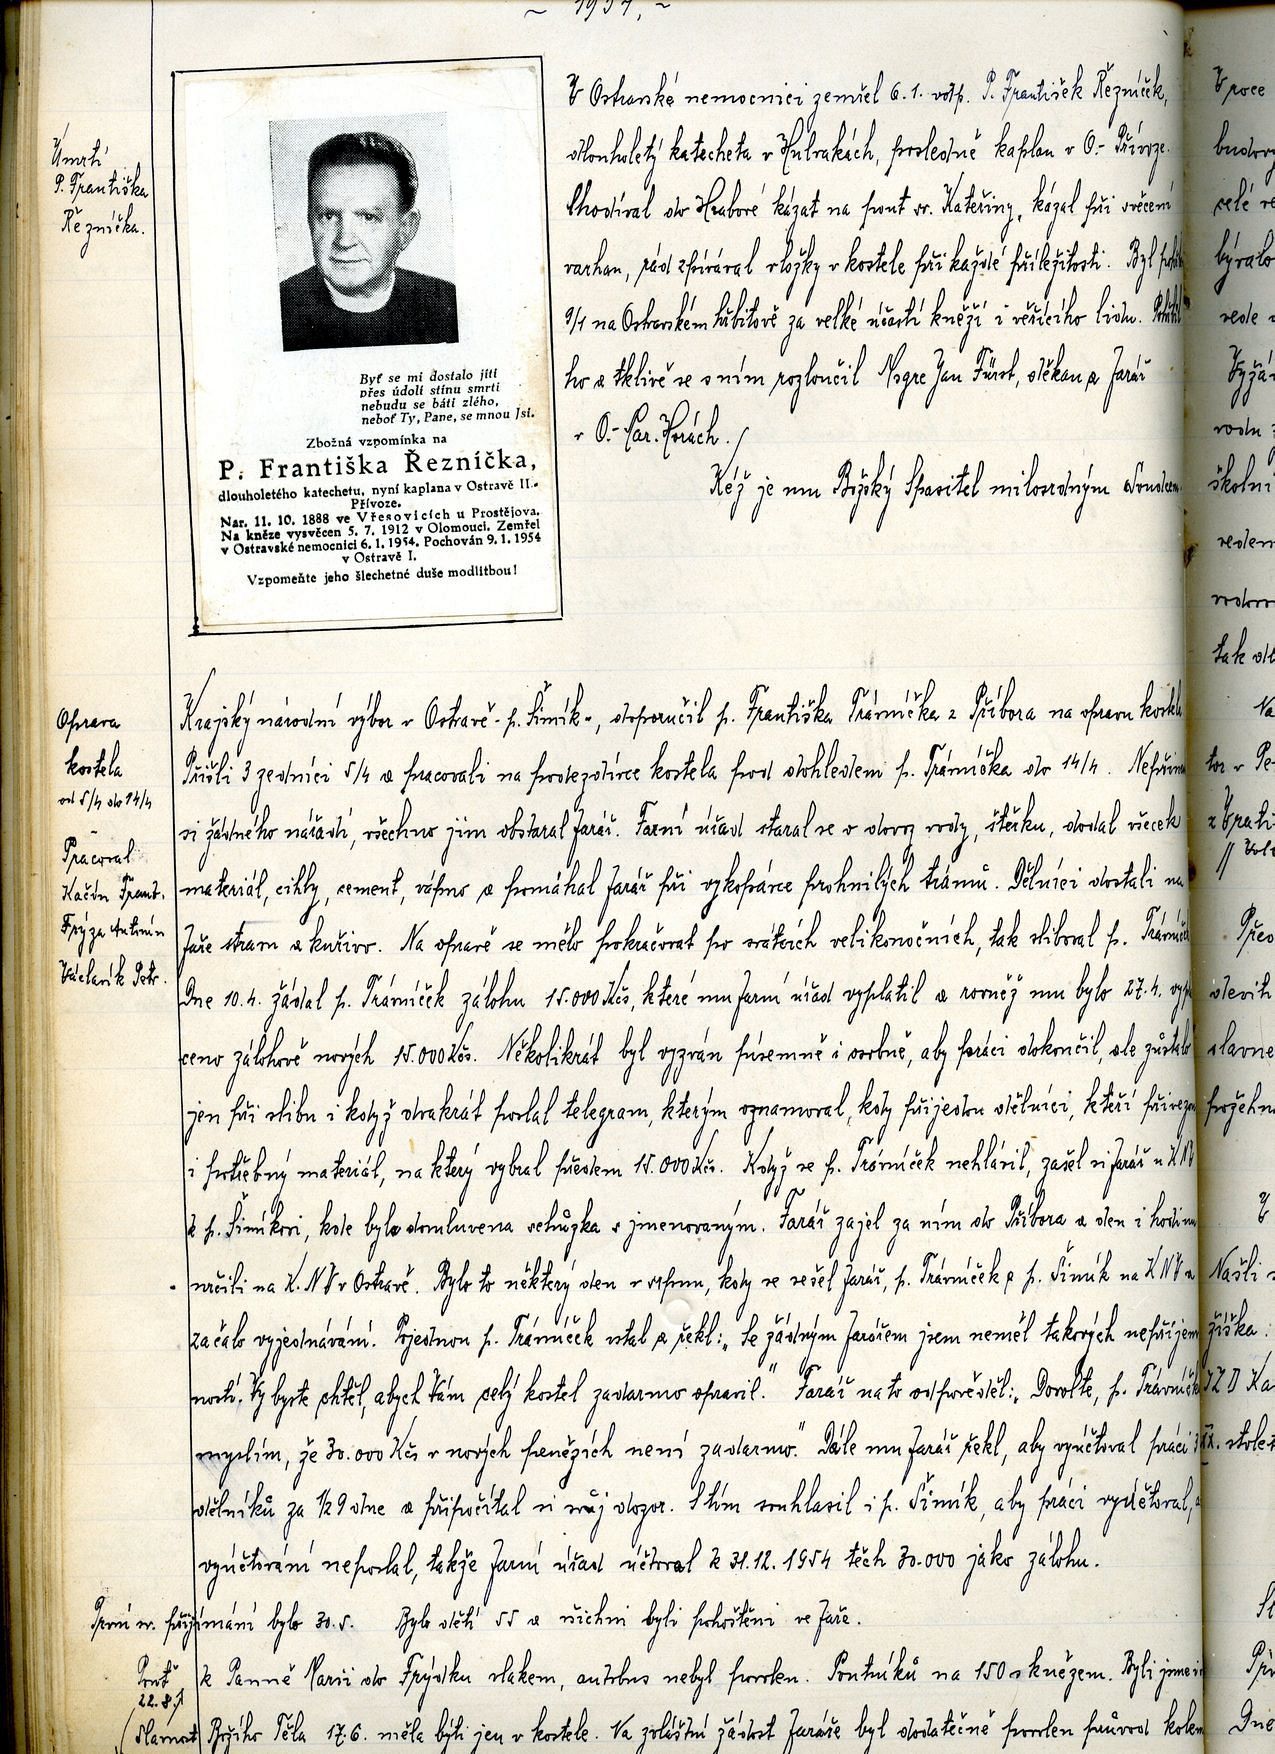 ~ 1954, ~
Úmrtí
P. Františka
Řezníčka.
Byť se mi dostalo jíti
přes údolí stínu smrti
nebudu se báti zlého,
neboť Ty, Pane, se mnou Jsi.
Zbožná vzpomínka na
P. Františka Řezníčka,
dlouholetého katechetu, nyní kaplana v Ostravě II.-
Přívoze.
Nar. 11. 10. 1888 ve Vřesovicích u Prostějova.
Na kněze vysvěcen 5. 7. 1912 v Olomouci. Zemřel
v Ostravské nemocnici 6. 1. 1954. Pochován 9. 1. 1954
v Ostravě I.
Vzpomeňte jeho šlechetné duše modlitbou!
V Ostravské nemocnici zemřel 6. 1. vdp. P. František Řezníček,
dlouholetý katecheta v Hulvakách, posledně kaplan v O.- Přívoze.
Chodíval do Hrabové kázat na pouť sv. Kateřiny, kázal při svěcení
varhan, rád zpívával vložky v kostele při každé příležitosti. Byl
9/1 na Ostravském hřbitově za velké účasti kněží i věřícího lidu.
ho a tklivě se s ním rozloučil Msgre Jan Fürst, děkan a farář
v O.- Mar. Horách.
Kéž je mu Božský Spasitel milosrdným
Oprava
kostela
od 5/4 do 14/4
Pracoval
Frant.
Frýza Antonín
Václavík Petr.
Krajský národní výbor v Ostravě - p. Šimík -, doporučil p. Františka Trávníčka z Příbora na opravu
Přišli 3 zedníci 5/4 a pracovali na podezdívce kostela pod dohledem p. Trávníčka do 14/4.
si žádného nářadí, všechno jim obstaral farář. Farní úřad staral se o dovoz vody, štěrku, dodal všecek
materiál, cihly, cement, vápno a pomáhal farář při vykopávce prohnilých trámů. Dělníci dostali na
faře stravu a kuřivo. Na opravě se mělo pokračovat po svátcích velikonočních, tak sliboval p.
Dne 10. 4. žádal p. Trávníček zálohu 15.000 Kčs, které mu farní úřad vyplatil a rovněž mu bylo 27. 4.
ceno zálohově nových 15.000 Kčs. Několikrát byl vyzván písemně i osobně, aby práci dokončil, ale zůstalo
jen při slibu i když dvakrát poslal telegram, kterým oznamoval, kdy přijedou dělníci, kteří
i potřebný materiál, na který vybral předem 15.000 Kčs. Když se p. Trávníček nehlásil, zašel si farář u KNV
k p. Šimíkovi, kde byla domluvena schůzka s jmenovaným. Farář zajel za ním do Příbora a den i hodinu
určili na K.NV v Ostravě. Bylo to některý den v srpnu, kdy se sešel farář, p. Trávníček a p. Šimík na KNV a
začalo vyjednávání. Pojednou p. Trávníček vstal a řekl: „Se žádným farářem jsem neměl takových nepříjem
ností. Vy byste chtěl, abych Vám celý kostel zadarmo opravil." Farář na to odpověděl: „Dovolte, p. Trávníčku
myslím, že 30.000 Kčs v nových penězích není zadarmo." Dále mu farář řekl, aby vyúčtoval práci 3
dělníků za 1/2 9 dne a připočítal si svůj dozor. S tím souhlasil i p. Šimík, aby práci vyúčtoval,
vyúčtování neposlal, takže farní úřad účtoval k 31.12. 1954 těch 30.000 jako zálohu.
První sv. přijímání bylo 30. 5. Bylo dětí 55 a všichni byli pohoštěni ve faře.
Pouť
22. 8.
k Panně Marii do Frýdku vlakem, autobus nebyl povolen. Poutníků na 150 s knězem. Byli jsme
(Slavnost Božího Těla 17. 6. měla býti jen v kostele. Na zvláštní žádost faráře byl dodatečně povolen průvod kolem